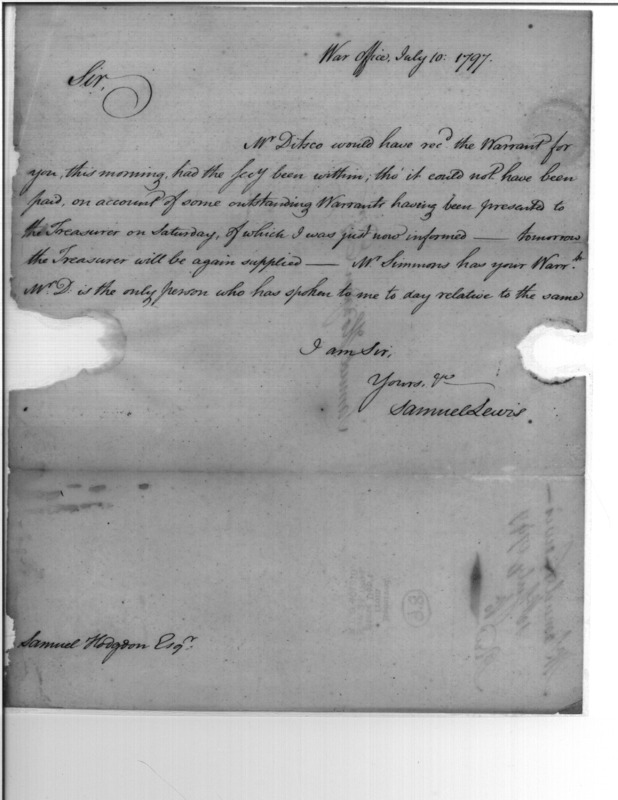 War Office, July 10: 1797.
Sir,
Mr Ditsco would have recd the Warrant for
you, this morning, had the Secy been within; tho' it could not have been
paid, on account of some outstanding Warrants having been presented to
the Treasurer on Saturday, of which I was just now informed — tomorrow
the Treasurer will be again supplied — Mr Simmons has your Warrts
Mr D. is the only person who has spoken to me to day relative to the same
I am Sir,
Yours, &c
Samuel Lewis
Samuel Hodgdon Esqr.